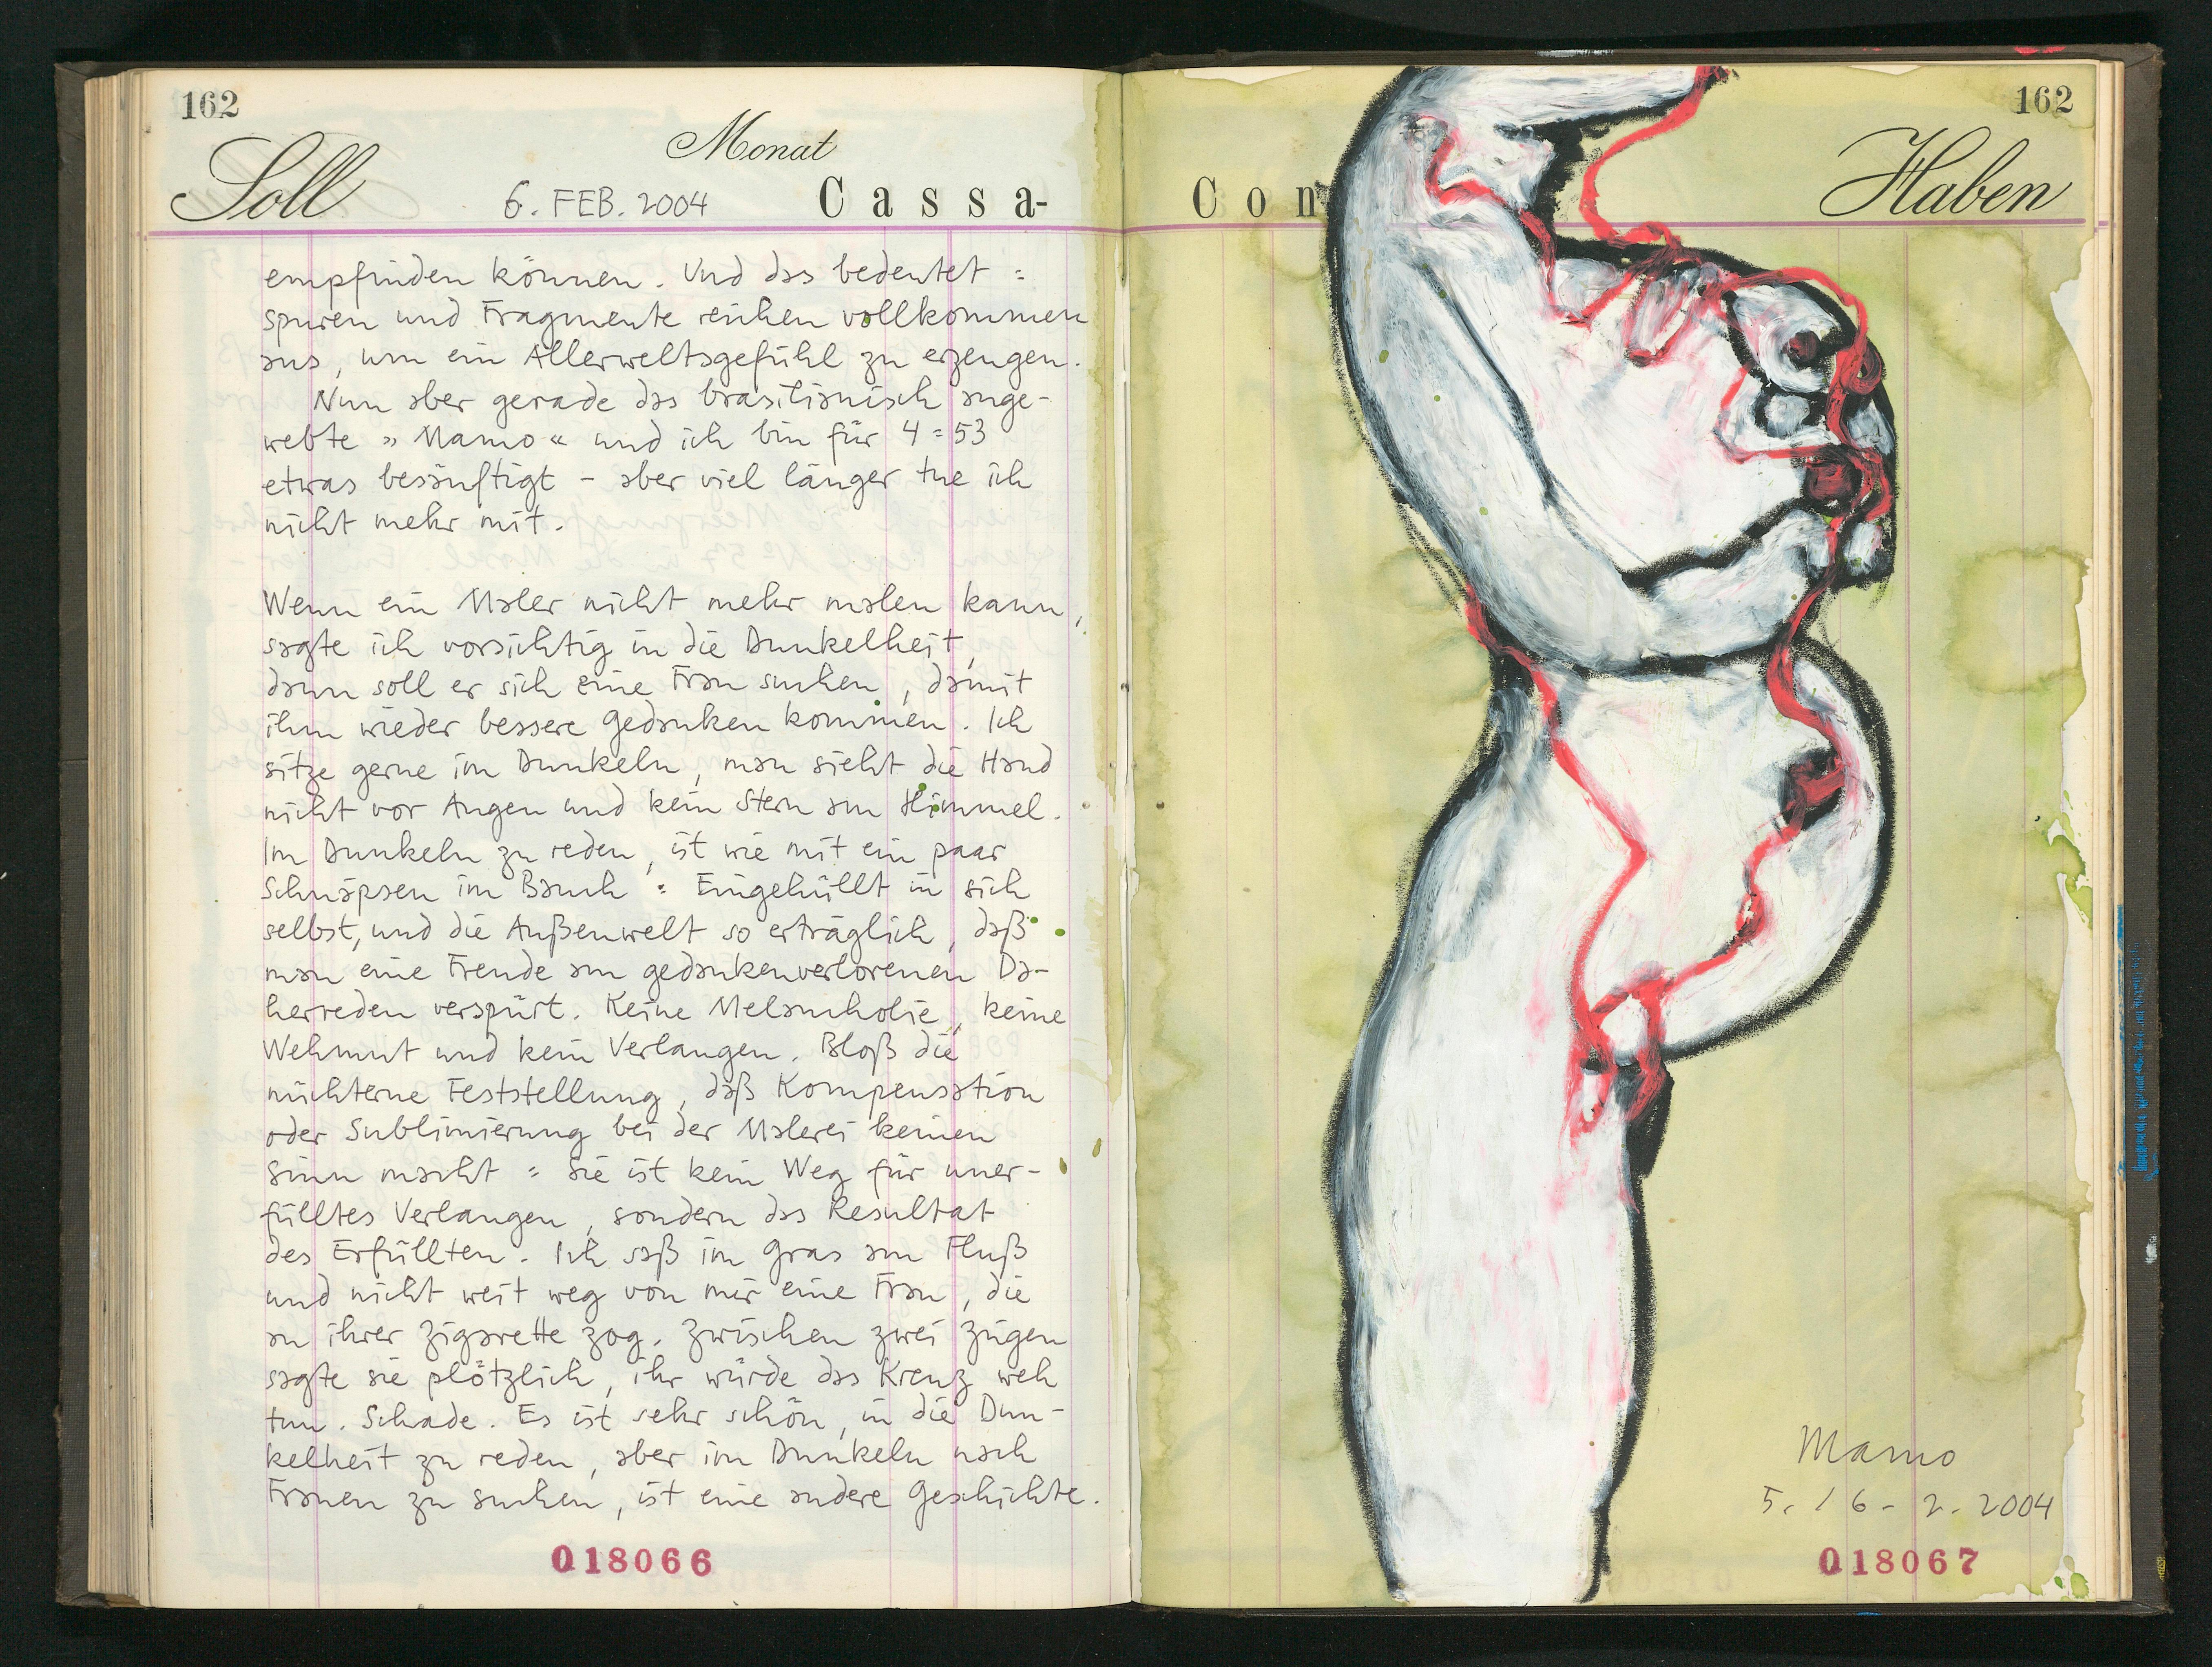 162
Soll
Monat
6. FEB. 2004
Cassa-
empfinden können. Und das bedeutet :
Spuren und Fragmente reichen vollkommen
aus, um ein Allerweltsgefühl zu erzeugen.
Nun aber gerade das brasilianisch ange-
webte »Mamo« und ich bin für 4:53
etwas besänftigt – aber viel länger tue ich
nicht mehr mit.
Wenn ein Maler nicht mehr malen kann,
sagte ich vorsichtig in die Dunkelheit,
dann soll er sich eine Frau suchen, damit
ihm wieder bessere Gedanken kommen. Ich
sitze gerne im Dunkeln, man sieht die Hand
nicht vor Augen und kein Stern am Himmel.
Im Dunkeln zu reden, ist wie mit ein paar
Schnäpsen im Bauch : Eingehüllt in sich
selbst, und die Außenwelt so erträglich, daß
man eine Freude am gedankenverlorenen Da-
herreden verspürt. Keine Melancholie, keine
Wehmut und kein Verlangen. Bloß die
nüchterne Feststellung, daß Kompensation
oder Sublimierung bei der Malerei keinen
Sinn macht : Sie ist kein Weg für uner-
fülltes Verlangen, sondern das Resultat
des Erfüllten. Ich saß im Gras am Fluß
und nicht weit weg von mir eine Frau, die
an ihrer Zigarette zog. Zwischen zwei Zügen
sagte sie plötzlich, ihr würde das Kreuz weh
tun. Schade. Es ist sehr schön, in die Dun-
kelheit zu reden, aber im Dunkeln nach
Frauen zu suchen, ist eine andere Geschichte.
018066
162
Con
Haben
Mamo
5. / 6. 2. 2004
018067